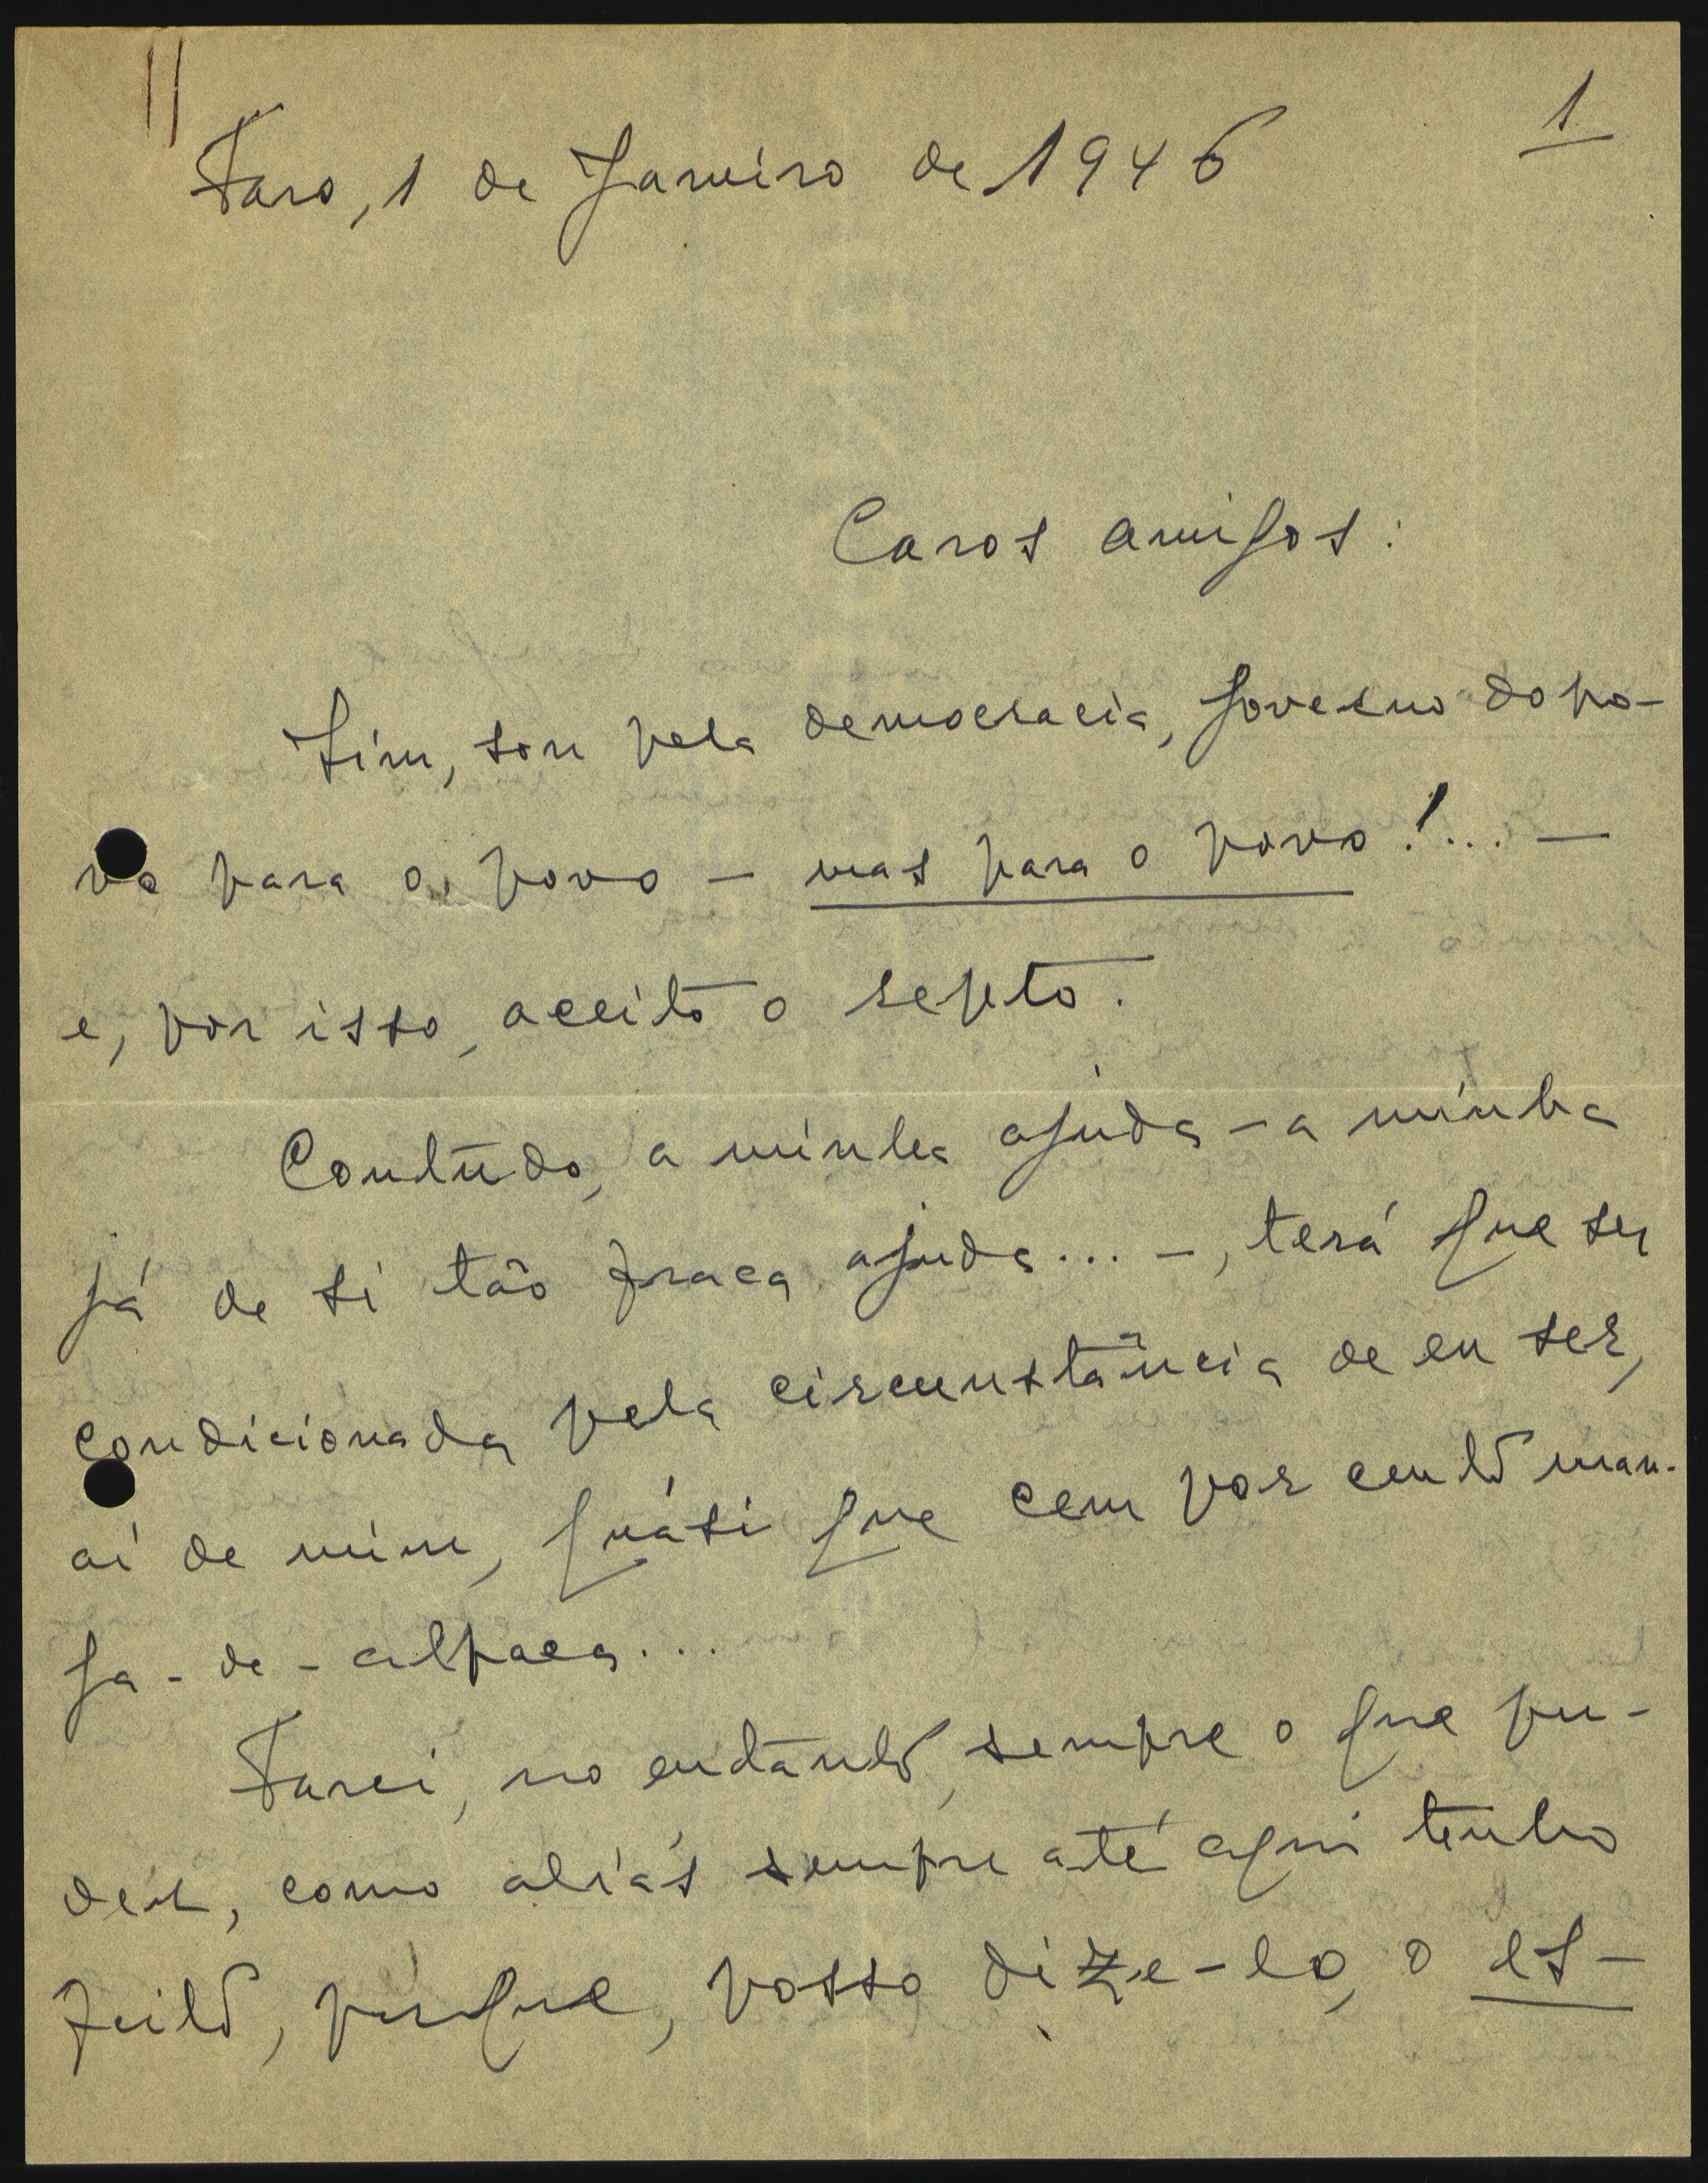 1
Faro, 1 de Janeiro de 1946
Caros amigos:
Sim, sou pela democracia, governo do po-
vo para o povo - mas para o povo!... -
e, por isso, aceito o repto.
Contudo, a minha ajuda - a minha
já de si tão fraca ajuda... -, terá que ser
condicionada pela circunstância de eu ser,
ai de mim, quási que cem por cento man-
ga-de-alpaca...
Farei, no entanto, sempre o que pu-
der, como aliás sempre até aqui tenho
feito, porque, posso dize-lo, o es-